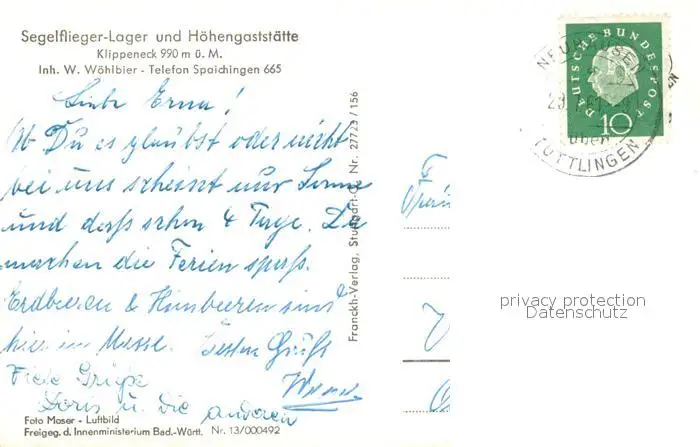 Segelflieger-Lager und Höhengaststätte
Klippeneck 990 m ü. M.
Inh. W. Wöhlbier - Telefon Spaichingen 665
Liebe Erna!
Ob Du es glaubst oder nicht
bei uns scheint nur Sonne
und dass schon 4 Tage. Da
machen die Ferien spass.
Erdbeeren & Himbeeren sind
hier in Masse. Besten Gruß
Viele Grüße
Doris u. die anderen
Foto Moser - Luftbild
Freigeg. d. Innenministerium Bad.-Württ. Nr. 13/000492
Franckh-Verlag, Stuttgart-O, Nr. 27723/156
DEUTSCHE BUNDESPOST
10
NEUHAUSEN
über
TUTTLINGEN
privacy protection
Datenschutz